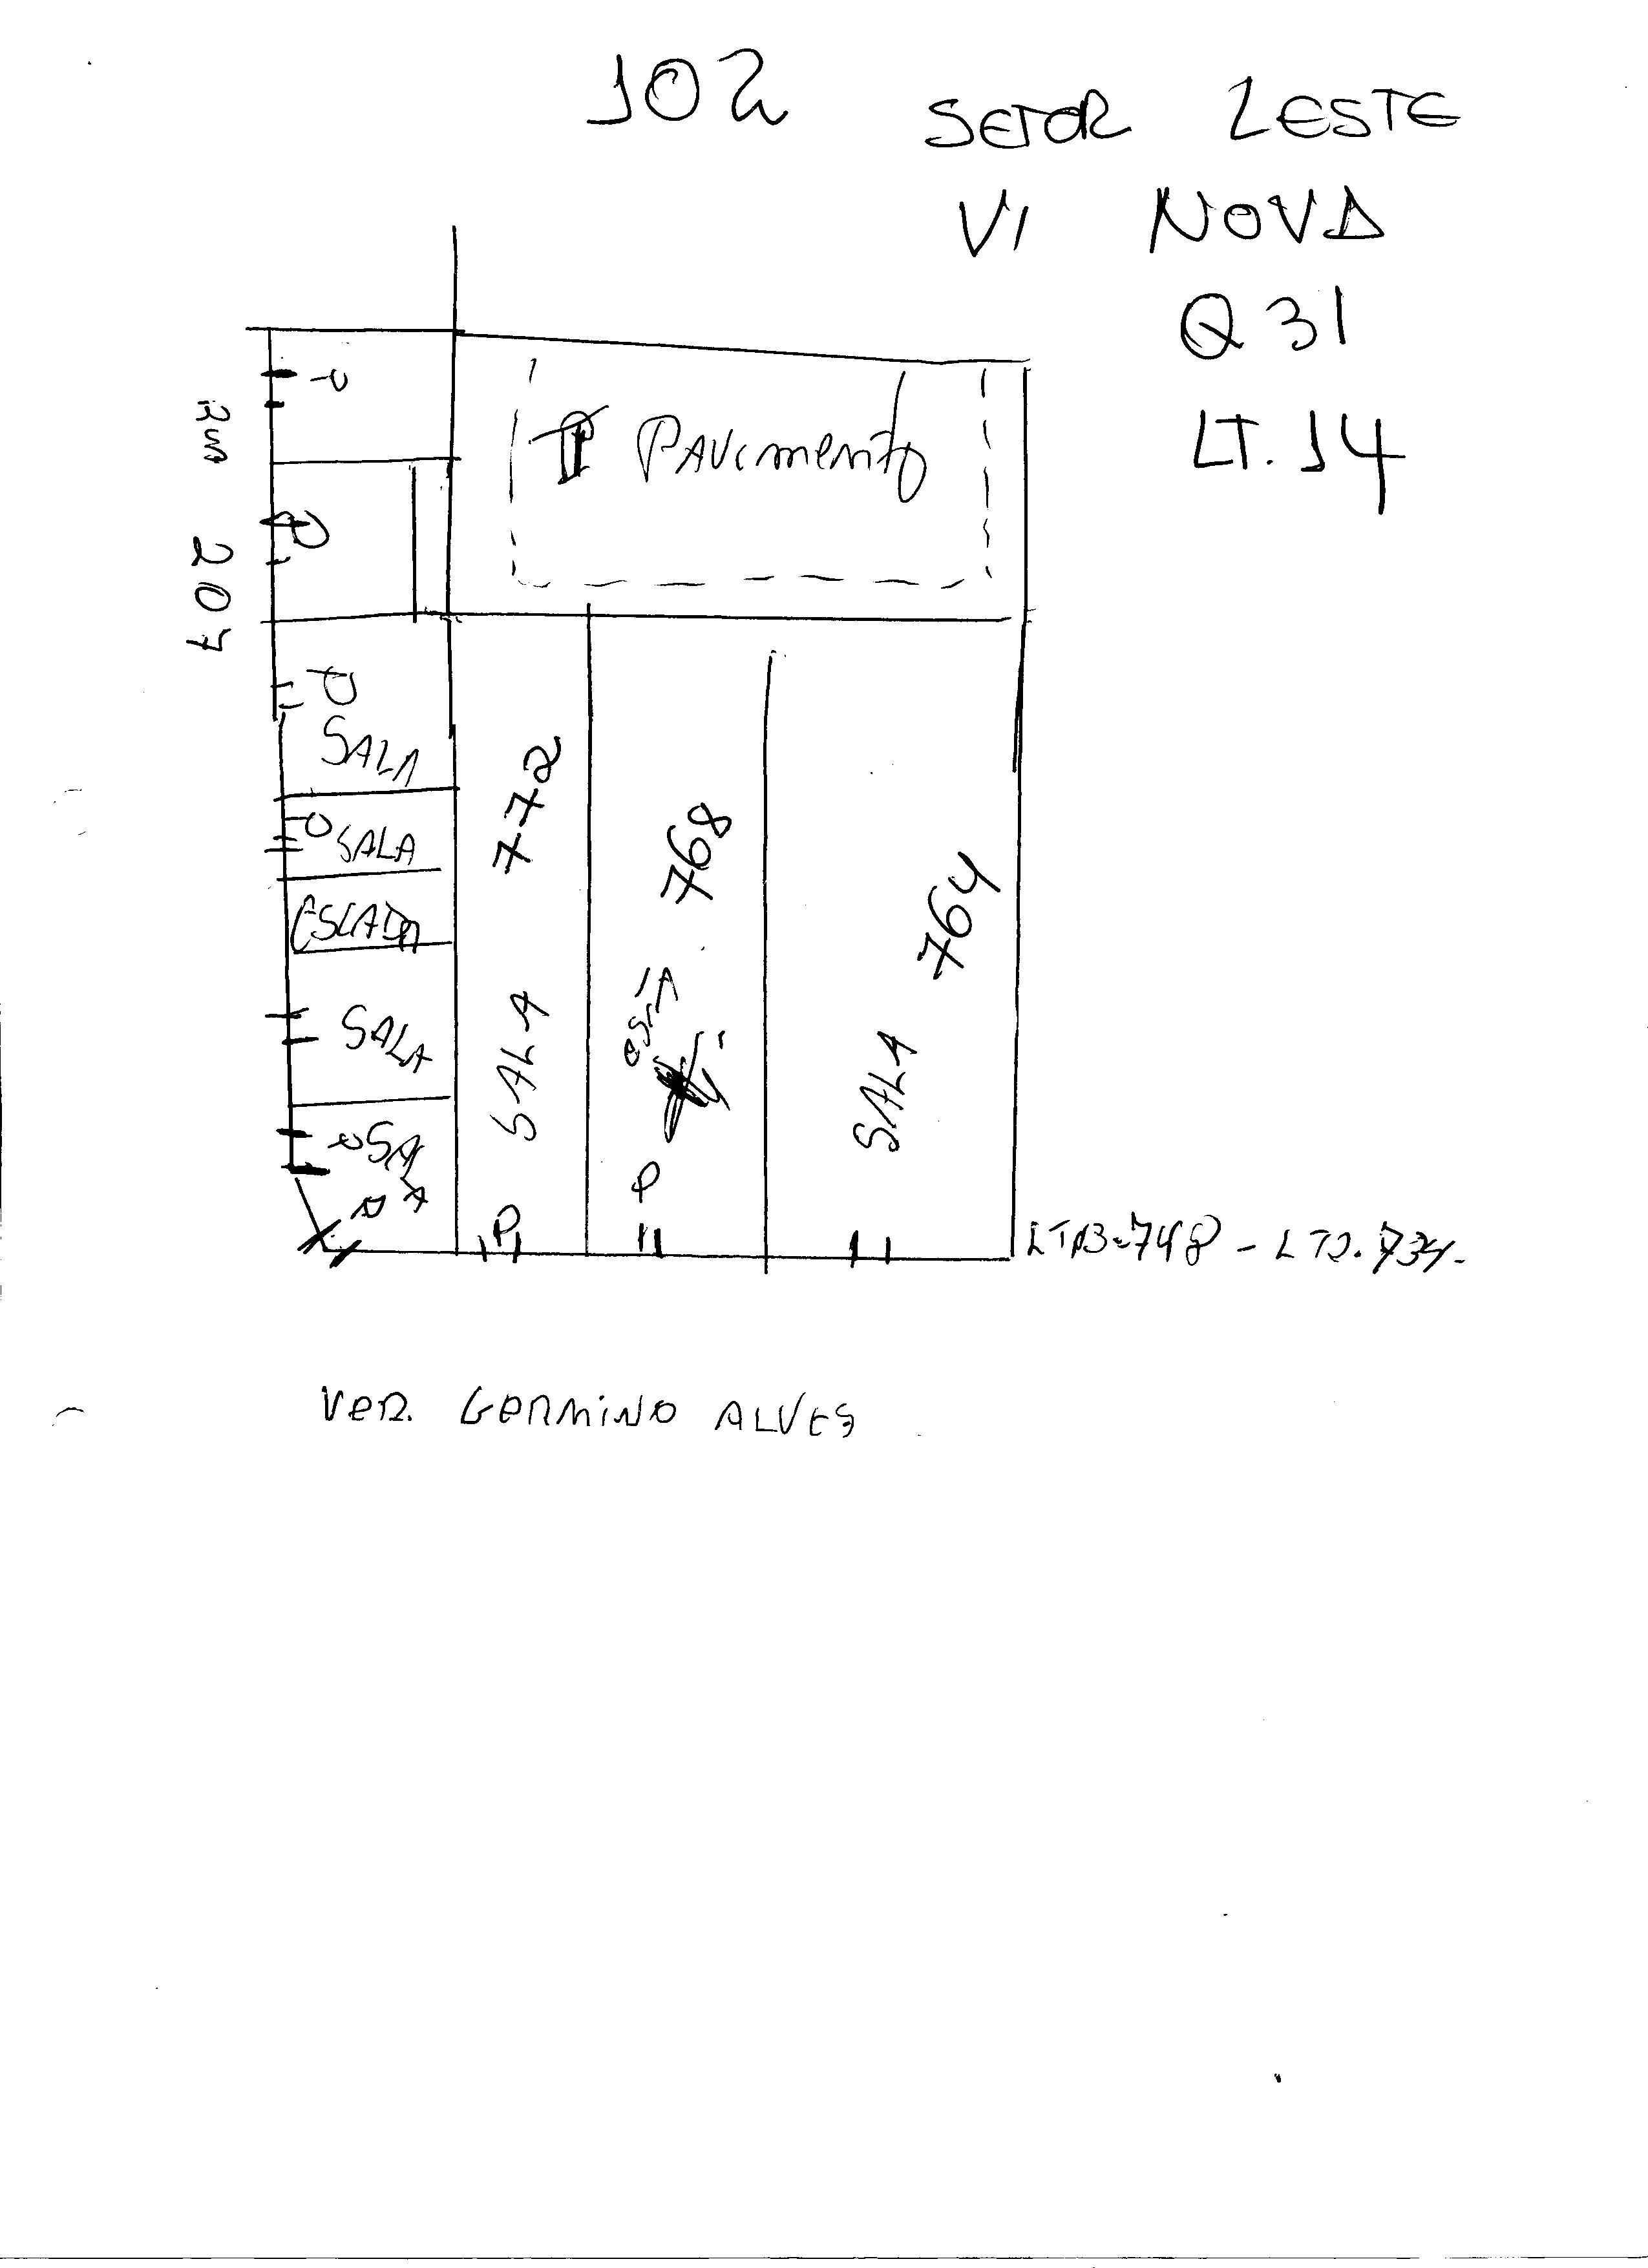 102
SETOR LESTE
VI NOVA
Q 31
LT. 14
P
PAVIMENTO
RUA 207
P
P
SALA
P SALA
ESCADA
SALA
P SALA
P
SALA 772
768
P
SALA 764
P
LT13-748 - LT2.734.
VER. GERMINO ALVES